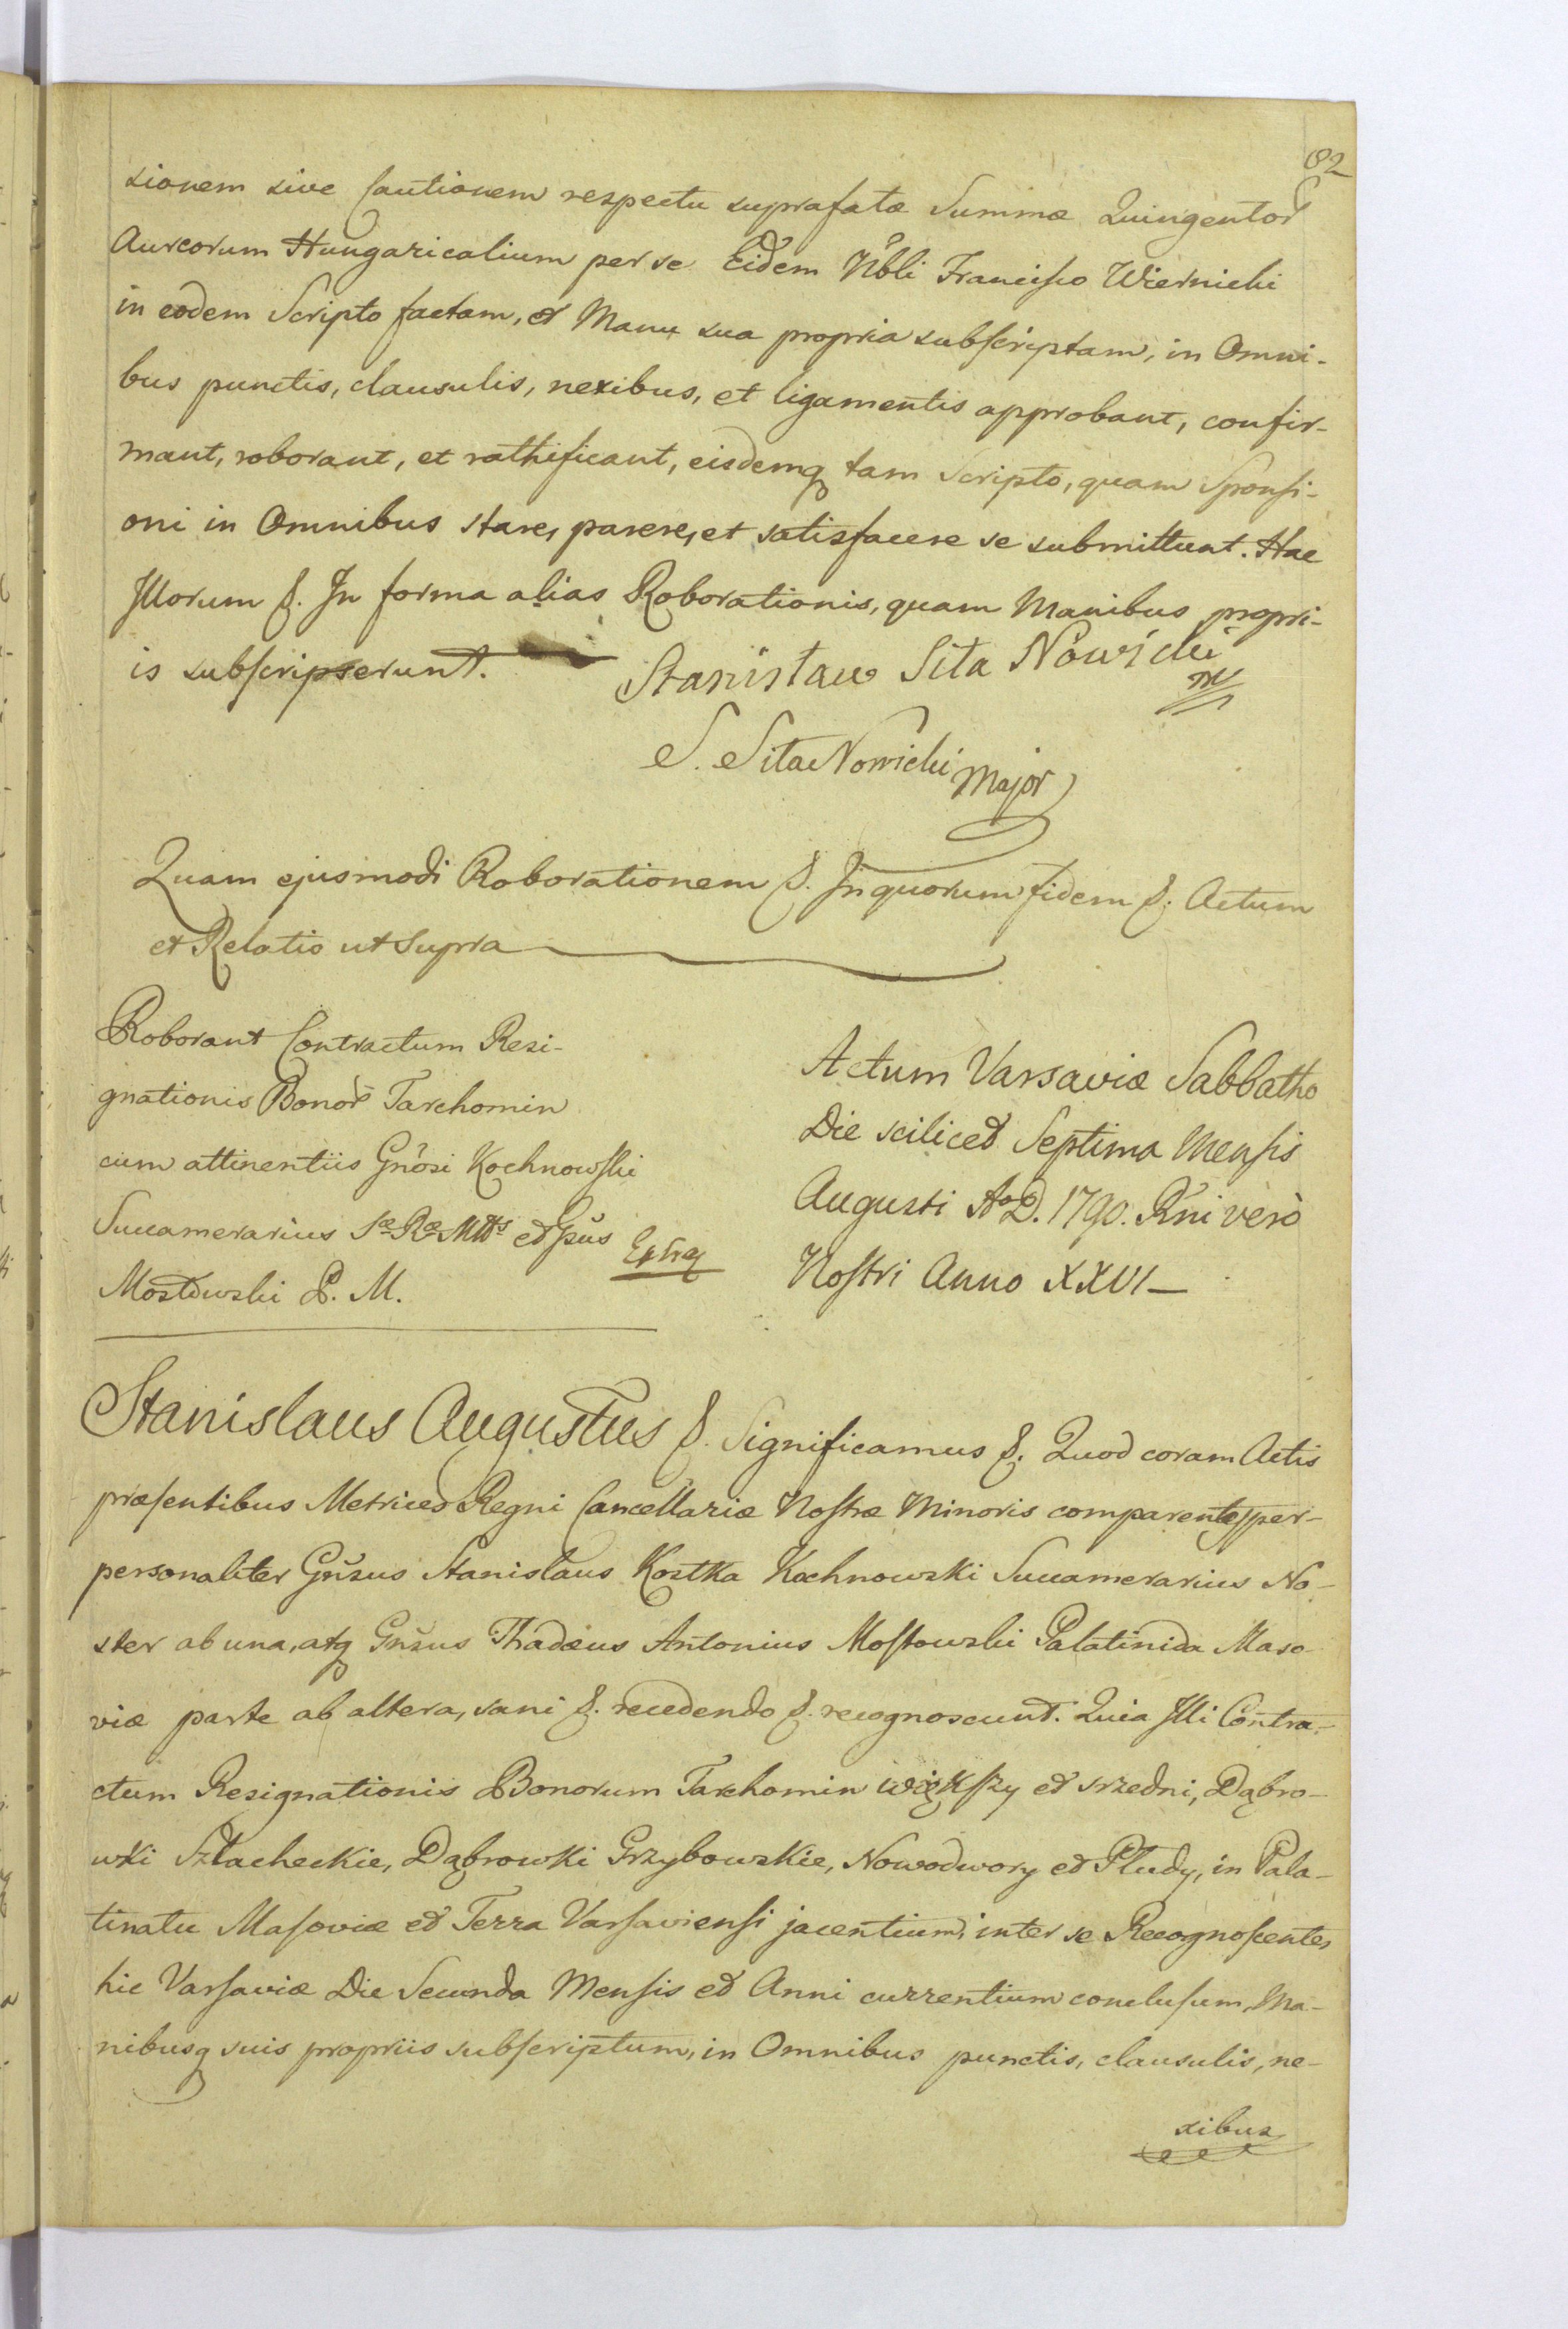 82
sionem sive Cautionem respectu suprafatæ Summæ Quingentor
Aureorum Hungaricalium per se Eidem Nbli Francisco Wiernicki
in eodem Scripto factam, et Manu sua propria subscriptam, in Omni-
bus punctis, clausulis, nexibus, et ligamentis approbant, confir-
mant, roborant, et rathificant, eisdemq tam Scripto, quam Sponsi-
oni in Omnibus stare, parere, et satisfacere se submittunt. Hac
Illorum &. In forma alias Roborationis, quam Manibus propri-
is subscripserunt. Stanisław Sita Nowicki
mp
S. Sita Nowicki Major
Quam ejusmodi Roborationem &. In quorum fidem &. Actum
et Relatio ut Supra
Roborant Contractum Resi-
gnationis Bonor Tarchomin
cum attinentiis Gnosi Kochnowski
Succamerarius Sæ Ræ Mttis et Gsus
Mostowski P. M.
Extra
Actum Varsaviæ Sabbatho
Die scilicet Septima Mensis
Augusti Ao D. 1790. Rni verò
Nostri Anno XXVI
Stanislaus Augustus &. Significamus &. Quod coram Actis
præsentibus Metrices Regni Cancellariæ Nostræ Minoris comparentes per-
personaliter Gnsus Stanislaus Kostka Kochnowski Succamerarius No-
ster ab una, atq Gnsus Thadæus Antonius Mostowski Palatinida Maso-
viæ parte ab altera, sani &. recedendo &. recognoscunt. Quia Illi Contra-
ctum Resignationis Bonorum Tarchomin większy et srzedni, Dąbro-
wki Szlacheckie, Dąbrowki Grzybowskie, Nowodwory et Płudy, in Pala-
tinatu Masoviæ et Terra Varsaviensi jacentium, inter se Recognoscentes
hic Varsaviæ Die Secunda Mensis et Anni currentium conclusum, Ma-
nibusq suis propriis subscriptum, in Omnibus punctis, clausulis, ne-
xibus